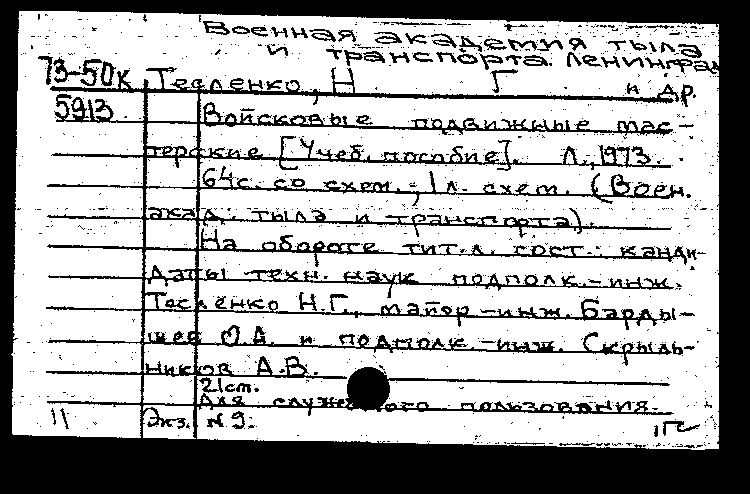 Военная академия тыла
и транспорта. Ленинград
73-50к Тесленко, Н Г и др.
5913 Войсковые подвижные мас-
терские [Учеб. пособие]. Л., 1973.
64с. со схем.; 1 л. схем. (Воен.
акад. тыла и транспорта).
На обороте тит.л. сост.: канди-
даты техн. наук подполк.-инж.
Тесленко Н.Г., майор-инж. Барды-
шев О.А. и подполк.-инж. Скрыль-
ников А.В.
21см.
Для служебного пользования.
11 Экз. №9.